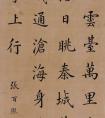 雲臺萬里
日眺秦城
通滄海身
上行
張百熙